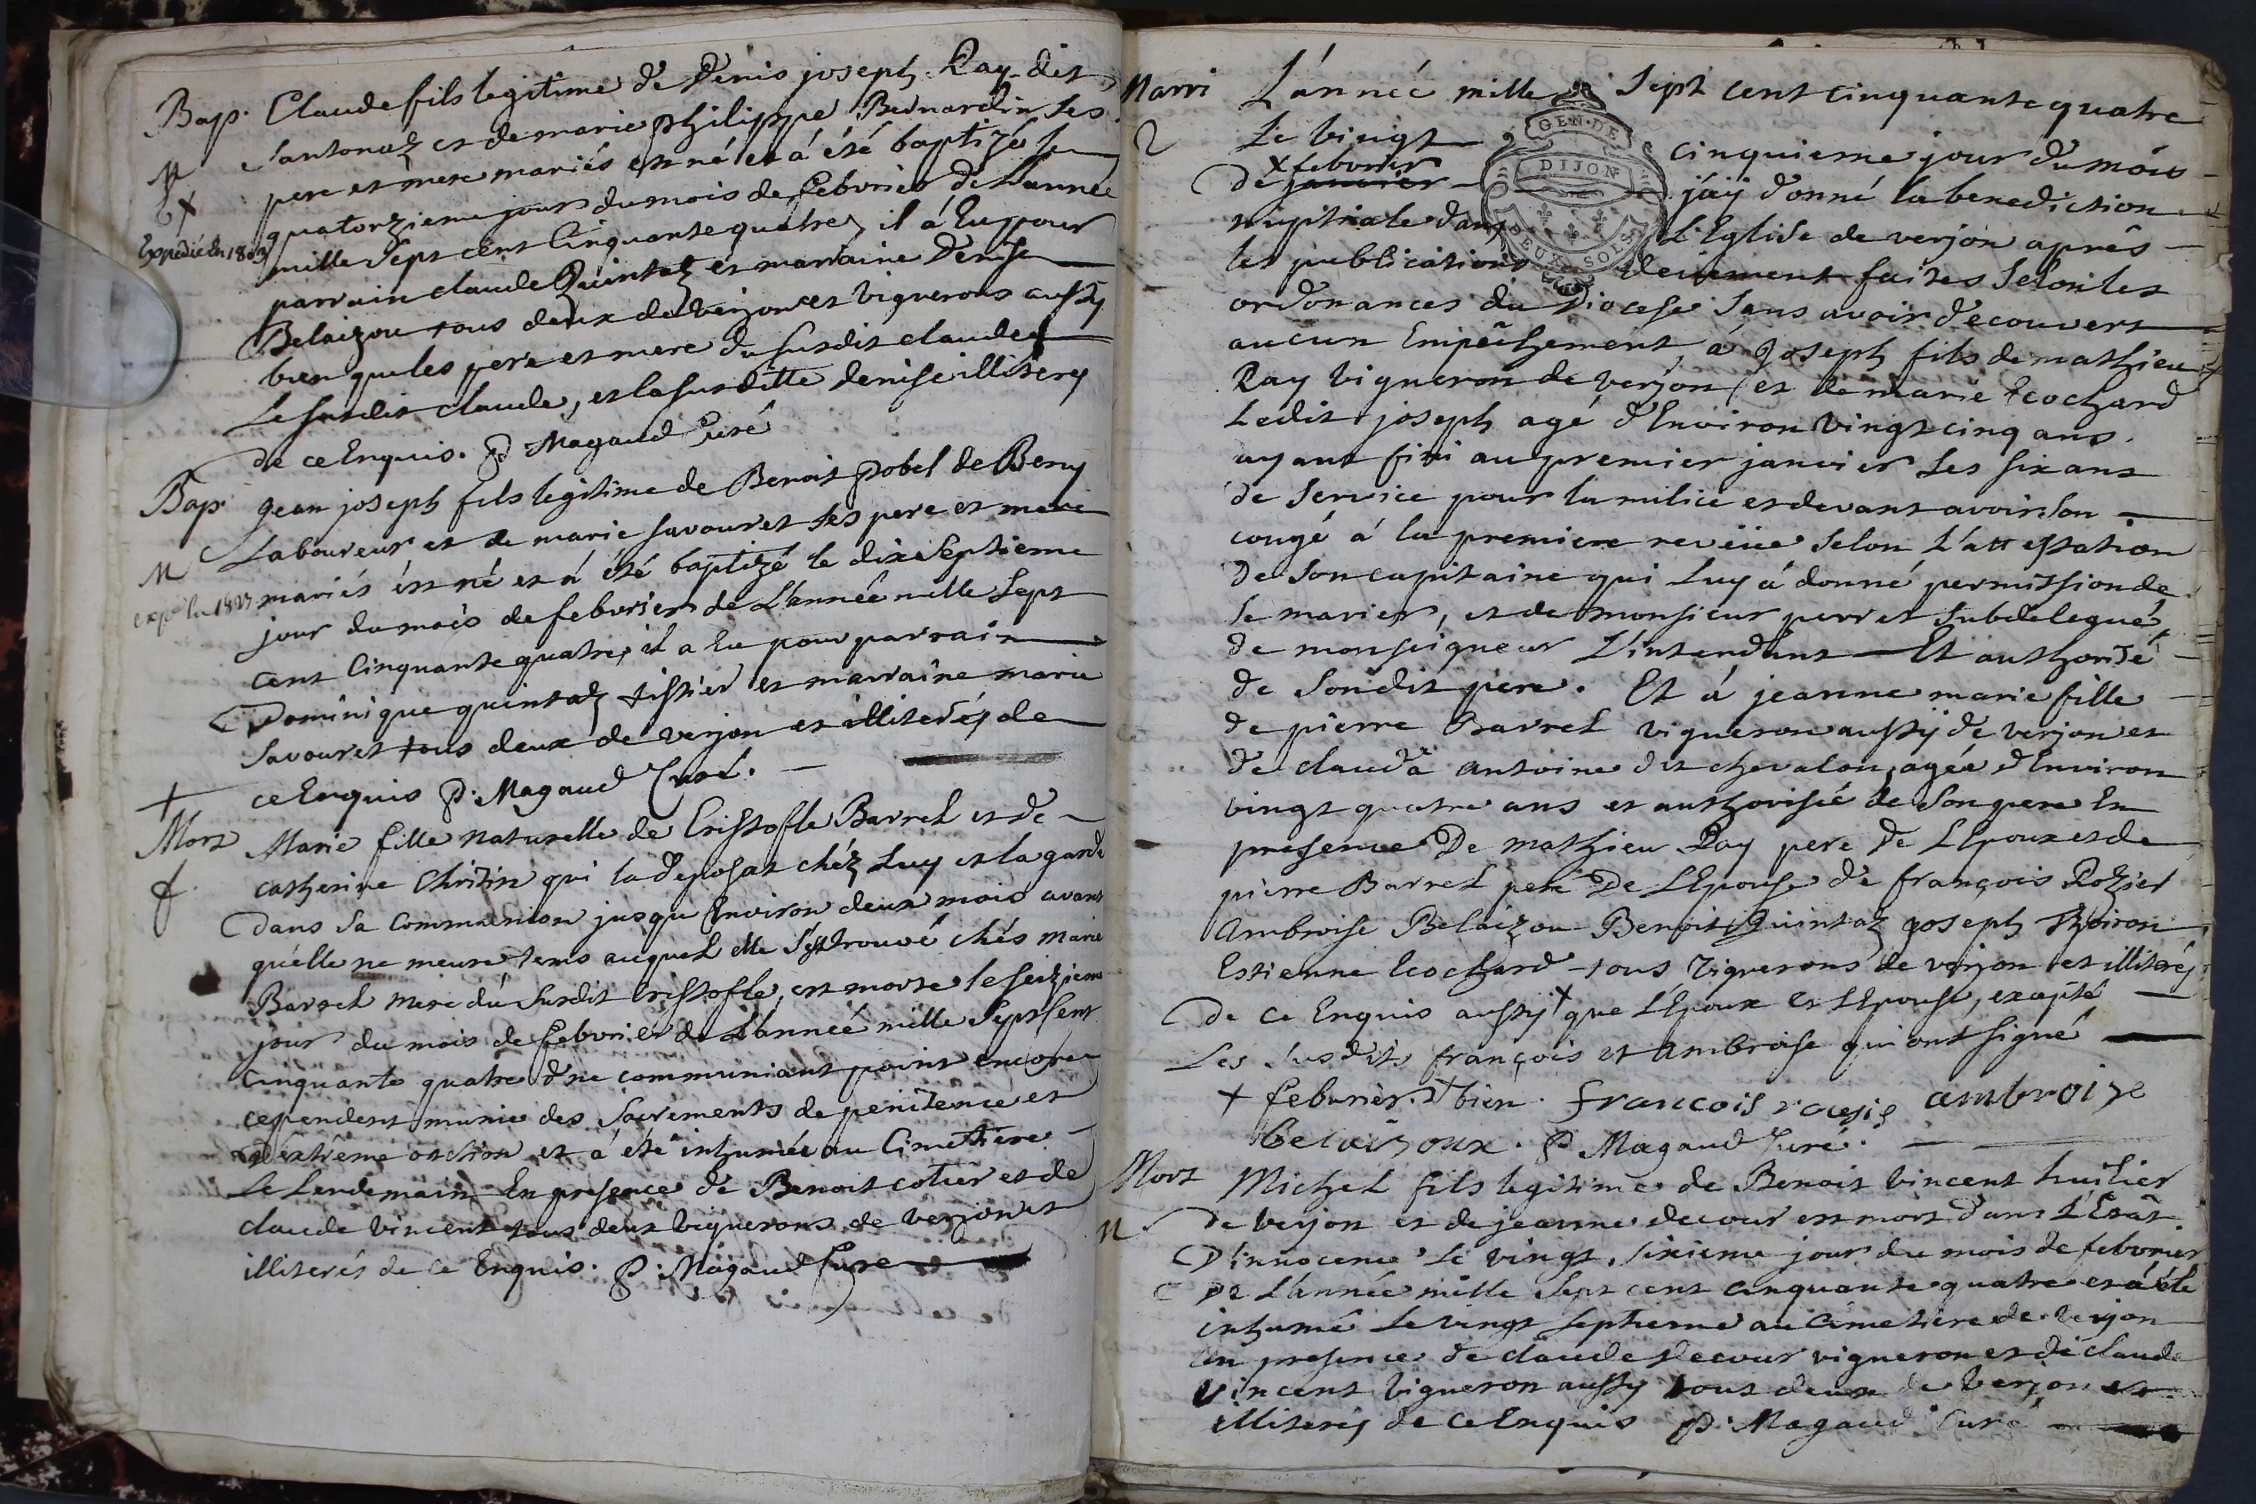 Bap. Claude fils legitime de Denis joseph Ray dit
Santonaz et de marie philippe Bernardin ses
M pere et mere mariés est né et á été baptizé le
quatorzieme jour du mois de febvrier de L'année
Expedié en 1803 mille sept cent Cinquante quatre, il á Eu pour
parrain claude Quintaz et marraine Denise
Belaizou tous deux de verjon et vignerons aussy
bien que les pere et mere du susdit claude
Le susdit claude, et la susditte denise illiterez
de ce Enquis. P. Magaud Curé
Bap. jean joseph fils legitime de Benoit pobel de Beny
Laboureur et de marie savouret ses pere et mere
M mariés est né et á été baptizé le dix septieme
jour du mois de febvrier de L'année mille sept
cent Cinquante quatre, il a Eu pour parrain
Dominique quintaz tissier et marraine marie
savouret tous deux de verjon et illiterés de
ce Enquis P. Magaud Curé.
+
Mort Marie fille naturelle de Cristofle Barrel et de
catherine Chritin qui la deposat chéz Luy et la garde
dans sa Communion jusqu'Environ deux mois avant
qu'elle ne meure tems auquel elle s'est trouvé chés marie
Barrel mere du susdit Cristofle, est morte le seizieme
jour du mois de febvrier de L'année mille sept cent
Cinquante quatre ne communiant point encore
cependent munie des sacrements de penitence et
d'extrême onction et á été inhumée au Cimetiere
Le Lendemain En presence de Benoit cotier et de
claude vincent tous deux vignerons de verjon et
illiterés de ce Enquis. P. Magaud Curé
Marri L'année mille sept cent cinquante quatre
Le vingt cinquieme jour du mois
x febvrier
de janvier j'ay donné la benediction
nuptiale dans L'Eglise de verjon aprés
les publications deuement faites selon les
ordonances du Diocese sans avoir decouvert
aucun Empêchement, á joseph fils de mathieu
Ray vigneron de verjon et de marie Ecochard
Ledit joseph agé d'Environ vingt cinq ans
ayant fini au premier janvier ses six ans
de service pour la milice et devant avoir son
congé á la premiere reveüe selon L'attestation
de son capitaine qui Luy á donné permission de
se marier, et de monsieur perret subdelegué
de monseigneur L'intendant Et authorisé
de sondit pere. Et á jeanne marie fille
de pierre Barrel vigneron aussy de verjon et
de clauda antoine dit chevalon, agée d'Environ
vingt quatre ans et authorisée de son pere En
presence De mathieu Ray pere de L'Epoux et de
pierre Barrel pere De L'Epouse de françois Rozier
Ambroise Belaizou Benoit Quintaz joseph Thoiron
Estienne Ecochard tous vignerons de verjon et illiterés
de ce Enquis aussy + que L'Epoux et L'Epouse, excepté
Les susdits françois et ambroise qui ont signé
+ febvrier. + bien. francois ambroize
belaizoux. P. Magaud Curé.
Mort Michel fils legitime de Benoit vincent huilier
de verjon et de jeanne decour est mort dans L'Etat
M D'innocence le vingt sixieme jour du mois de febvrier
De L'année mille sept cent cinquante quatre et á été
inhumé Le vingt septieme au cimetiere de verjon
En presence de claude decour vigneron et de claude
vincent vigneron aussy tout deux de verjon et
illiterés de ce Enquis P. Magaud Curé
GEN. DE
DIJON
DEUX SOLS